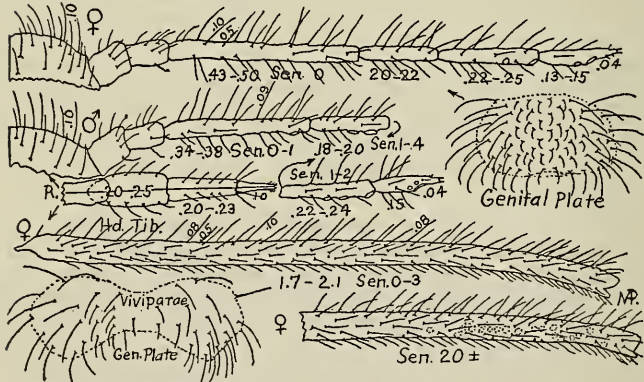 ♀ .10 .10 .05
.43-.50 Sen. 0 .20-.22 .22-.25 .13-.15 .04
♂ .10 .09
.34-.38 Sen. 0-1 .18-.20 Sen. 1-4
R. .20-.25 .20-.23 .10 Sen. 1-2 .22-.24 .15 .04
Genital Plate
♀ Hd. Tib. .08 .05 .10 .08
1.7-2.1 Sen. 0-3
Viviparae
Gen. Plate
♀ Sen. 20 ±